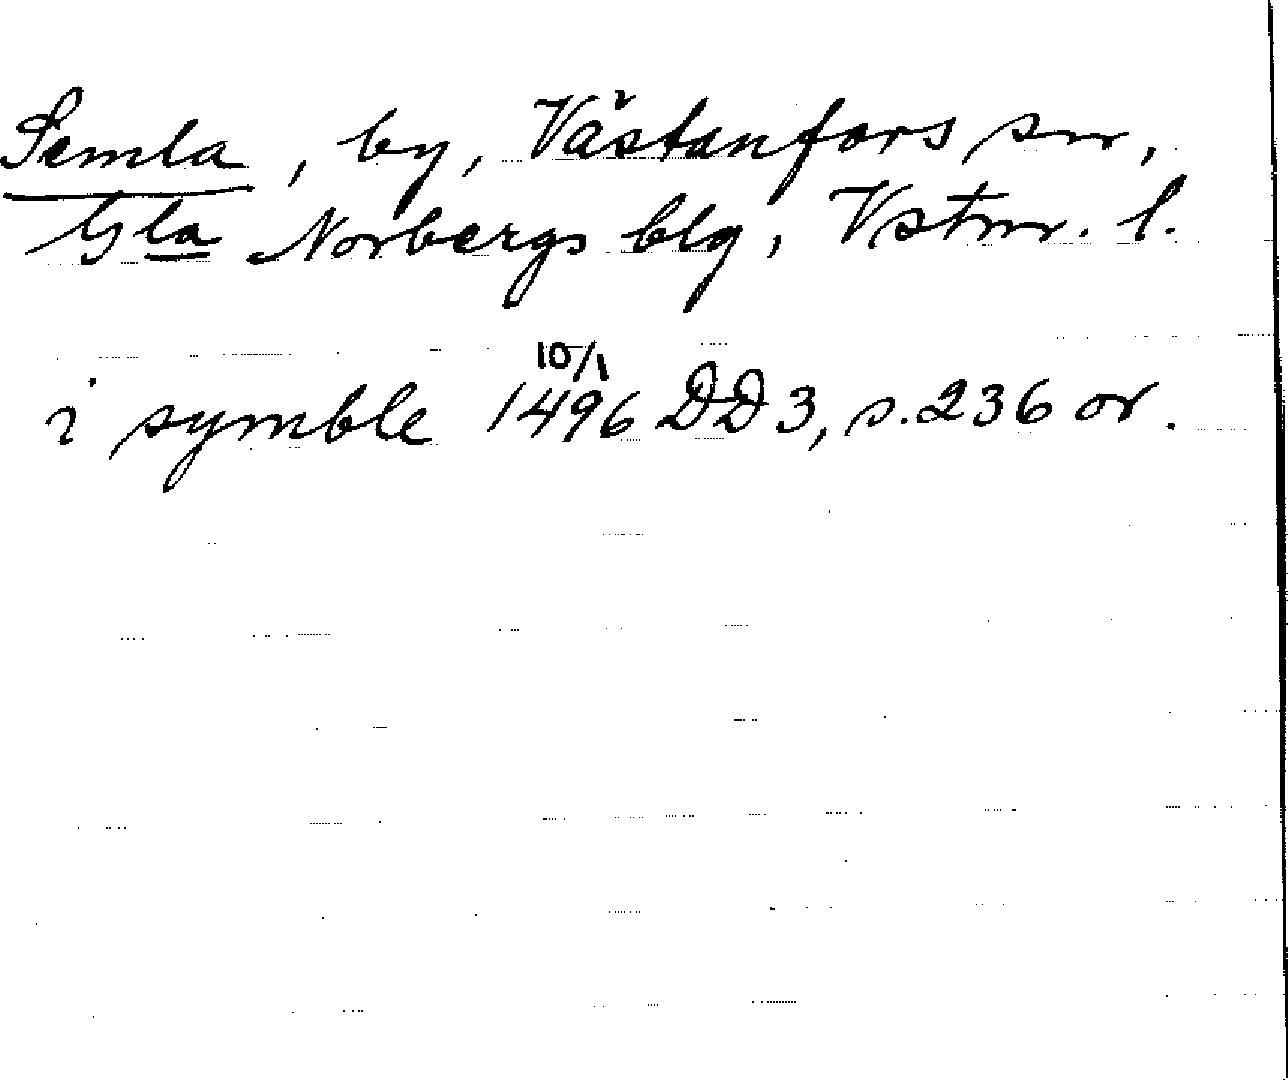 Semla, by, Västanfors sn,
Gla Norbergs blg, Vstm. l.
10/1
i symble 1496 DD 3, s. 236 or.